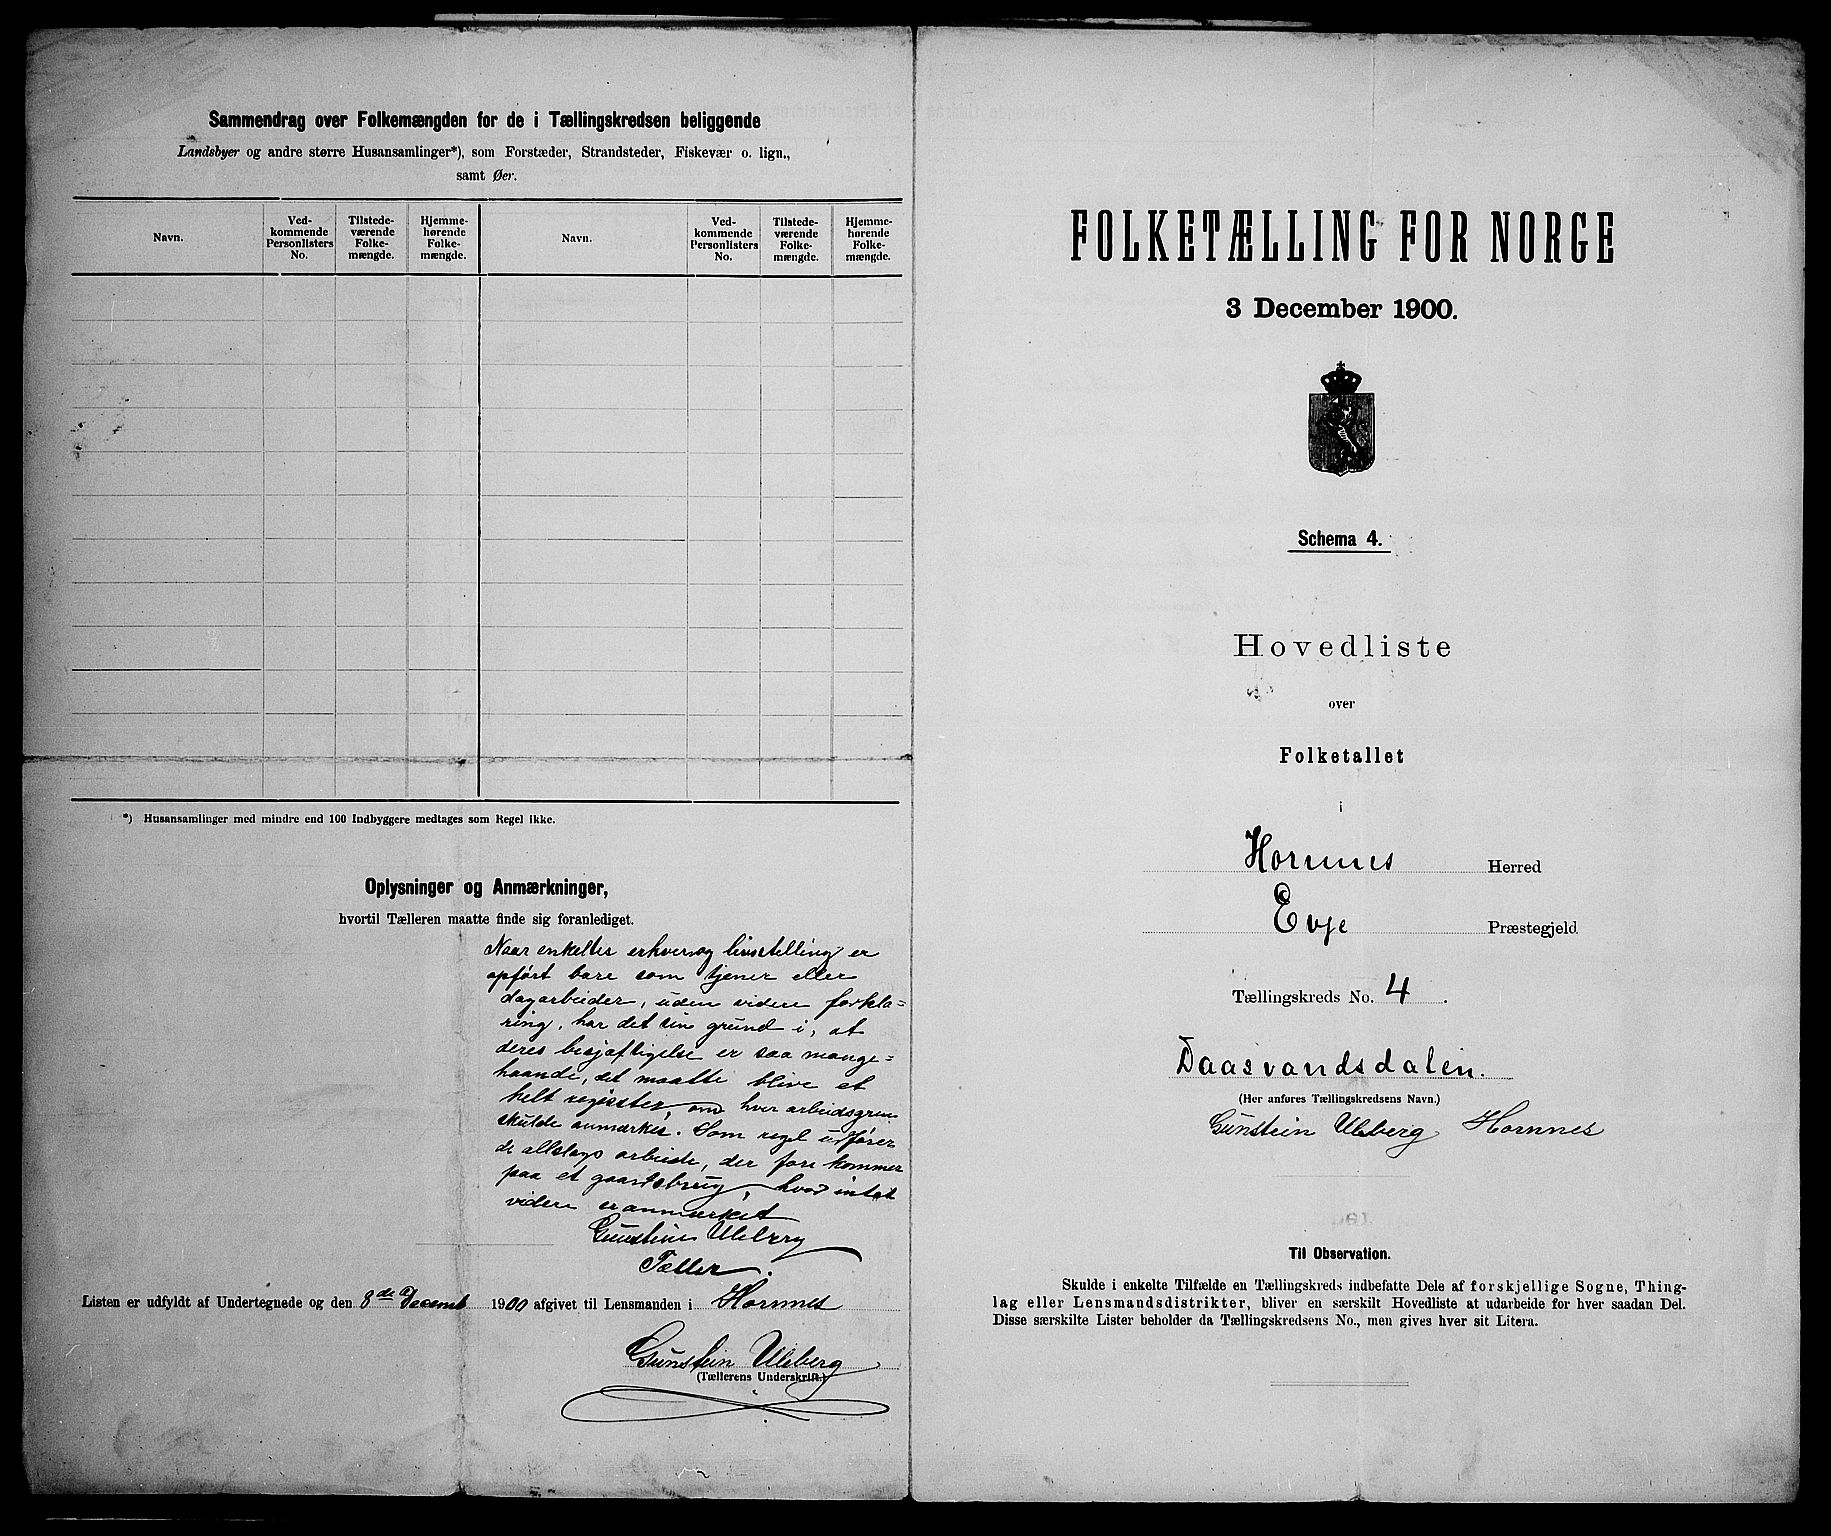 Sammendrag over Folkemængden for de i Tællingskredsen beliggende
Landsbyer og andre større Husansamlinger*), som Forstæder, Strandsteder, Fiskevær o. lign.,
samt Øer.
Navn.
Ved-
kommende
Personlisters
No.
Tilstede-
værende
Folke-
mængde.
Hjemme-
hørende
Folke-
mængde.
Navn.
Ved-
kommende
Personlisters
No.
Tilstede-
værende
Folke-
mængde.
Hjemme-
hørende
Folke-
mængde.
*) Husansamlinger med mindre end 100 Indbyggere medtages som Regel ikke.
Oplysninger og Anmærkninger,
hvortil Tælleren maatte finde sig foranlediget.
Naar enkeltes erhverv og livsstelling er
opført bare som tjener eller
dagarbeider, uden videre forkla=
ring, har det sin grund i, at
deres besjæftigelse er saa mange=
haande, det maatte blive et
helt register, om hver arbeidsgren
skulde anmærkes. Som regel udføre-
de allslags arbeide, der fore kommer
paa et gaardsbrug, hvor intet
videre er anmærket
Gunstein Uleberg
Tæller.
Listen er udfyldt af Undertegnede og den 8de Decemb 1900 afgivet til Lensmanden i Hornnes
Gunstein Uleberg
(Tællerens Underskrift.)
FOLKETÆLLING FOR NORGE
3 December 1900.
Schema 4.
Hovedliste
over
Folketallet
i
Hornnes Herred
Evje Præstegjeld
Tællingskreds No. 4.
Daasvandsdalen.
(Her anføres Tællingskredsens Navn.)
Gunstein Uleberg Hornnes
Til Observation.
Skulde i enkelte Tilfælde en Tællingskreds indbefatte Dele af forskjellige Sogne, Thing-
lag eller Lensmandsdistrikter, bliver en særskilt Hovedliste at udarbeide for hver saadan Del.
Disse særskilte Lister beholder da Tællingskredsens No., men gives hver sit Litera.